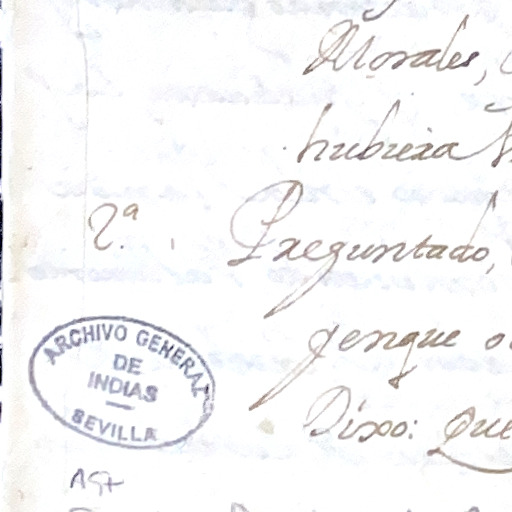 Morales,
hubiera
2ª. Preguntado,
gengue
Dixo: Que
ARCHIVO GENERAL
DE
INDIAS
SEVILLA